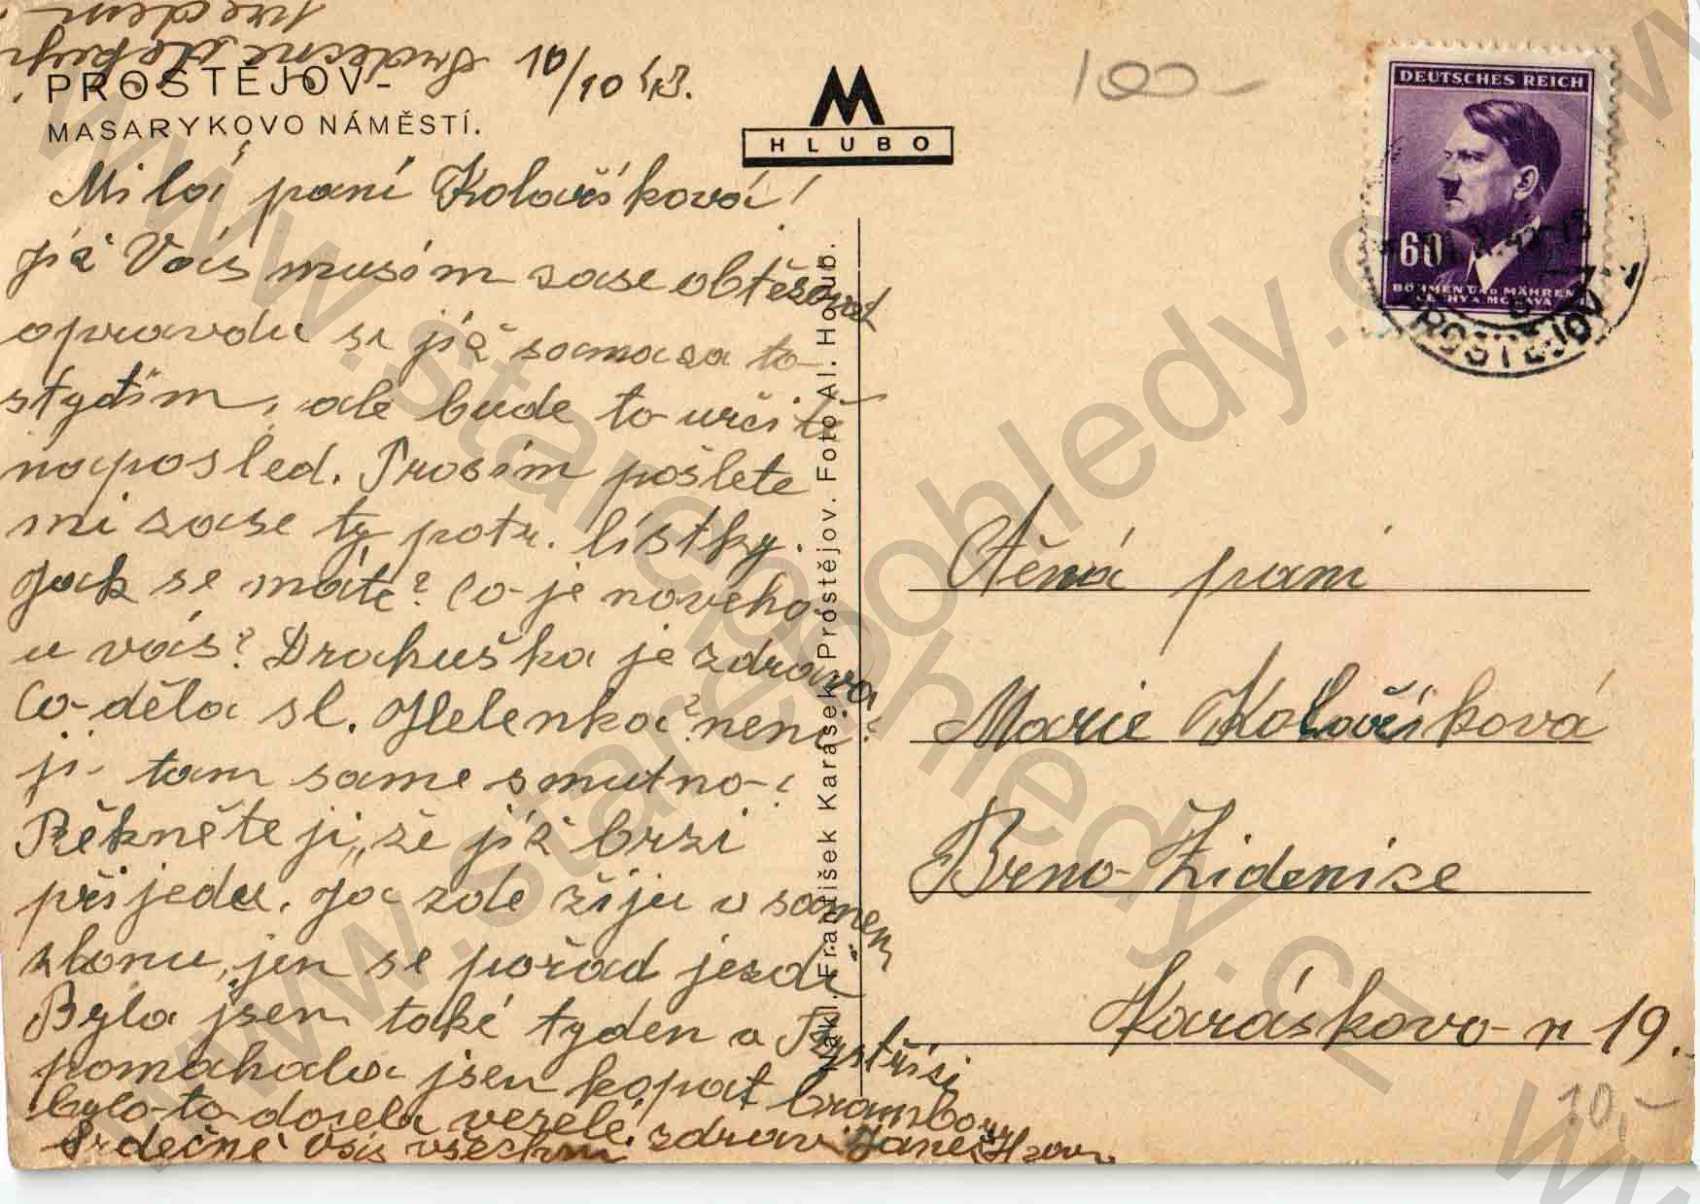 Srdečné
10/10 43.
PROSTĚJOV-
MASARYKOVO NÁMĚSTÍ.
M
HLUBO
100-
DEUTSCHES REICH
60
BÖHMEN UND MÄHREN
ČECHY A MORAVA
PROSTĚJOV
Milá paní Kolaříková!
již Vás musím zase obtěžovat
opravdu se již sama za to
stydím, ale bude to určitě
naposled. Prosím pošlete
mi zase ty potr. lístky.
Jak se máte? Co je noveho
u vás? Drahuška je zdrava
Co děla sl. Helenka? neni
ji tam same smutno?
Řekněte ji, že již brzi
přijedu. Ja zde žiju v samem
shonu, jen se pořad jezdí
Byla jsem také tyden v Bystřici
pomahala jsem kopat brambory
bylo to docela veselé.
Srdečné Vás všechny zdraví
Nakl. František Karásek Prostějov. Foto Al. Holub.
Ctěná pani
Marie Kolaříková
Brno-Židenice
Karáskovo n 19.
10,-
www.starepohledy.cz
www.starepohledy.cz